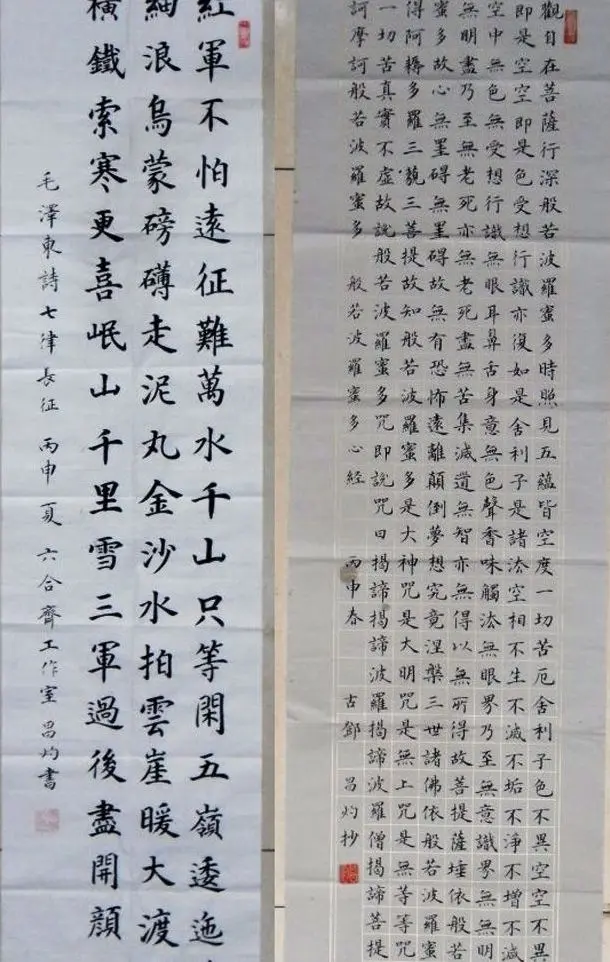 觀自在菩薩行深般若波羅蜜多時照見五蘊皆空度一切苦厄舍利子色不異空空不異
即是空空即是色受想行識亦復如是舍利子是諸法空相不生不滅不垢不淨不增不減
空中無色無受想行識無眼耳鼻舌身意無色聲香味觸法無眼界乃至無意識界無無明
無明盡乃至無老死亦無老死盡無苦集滅道無智亦無得以無所得故菩提薩埵依般若
蜜多故心無罣礙無罣礙故無有恐怖遠離顛倒夢想究竟涅槃三世諸佛依般若波羅蜜
得阿耨多羅三藐三菩提故知般若波羅蜜多是大神咒是大明咒是無上咒是無等等咒
一切苦真實不虛故說般若波羅蜜多咒即說咒曰揭諦揭諦波羅揭諦波羅僧揭諦菩提
訶摩訶般若波羅蜜多 般若波羅蜜多心經 丙申春 古鄮 昌灼抄
紅軍不怕遠征難萬水千山只等閑五嶺逶迤
細浪烏蒙磅礴走泥丸金沙水拍雲崖暖大渡
橫鐵索寒更喜岷山千里雪三軍過後盡開顏
毛澤東詩七律長征 丙申夏 六合齋工作室 昌灼書